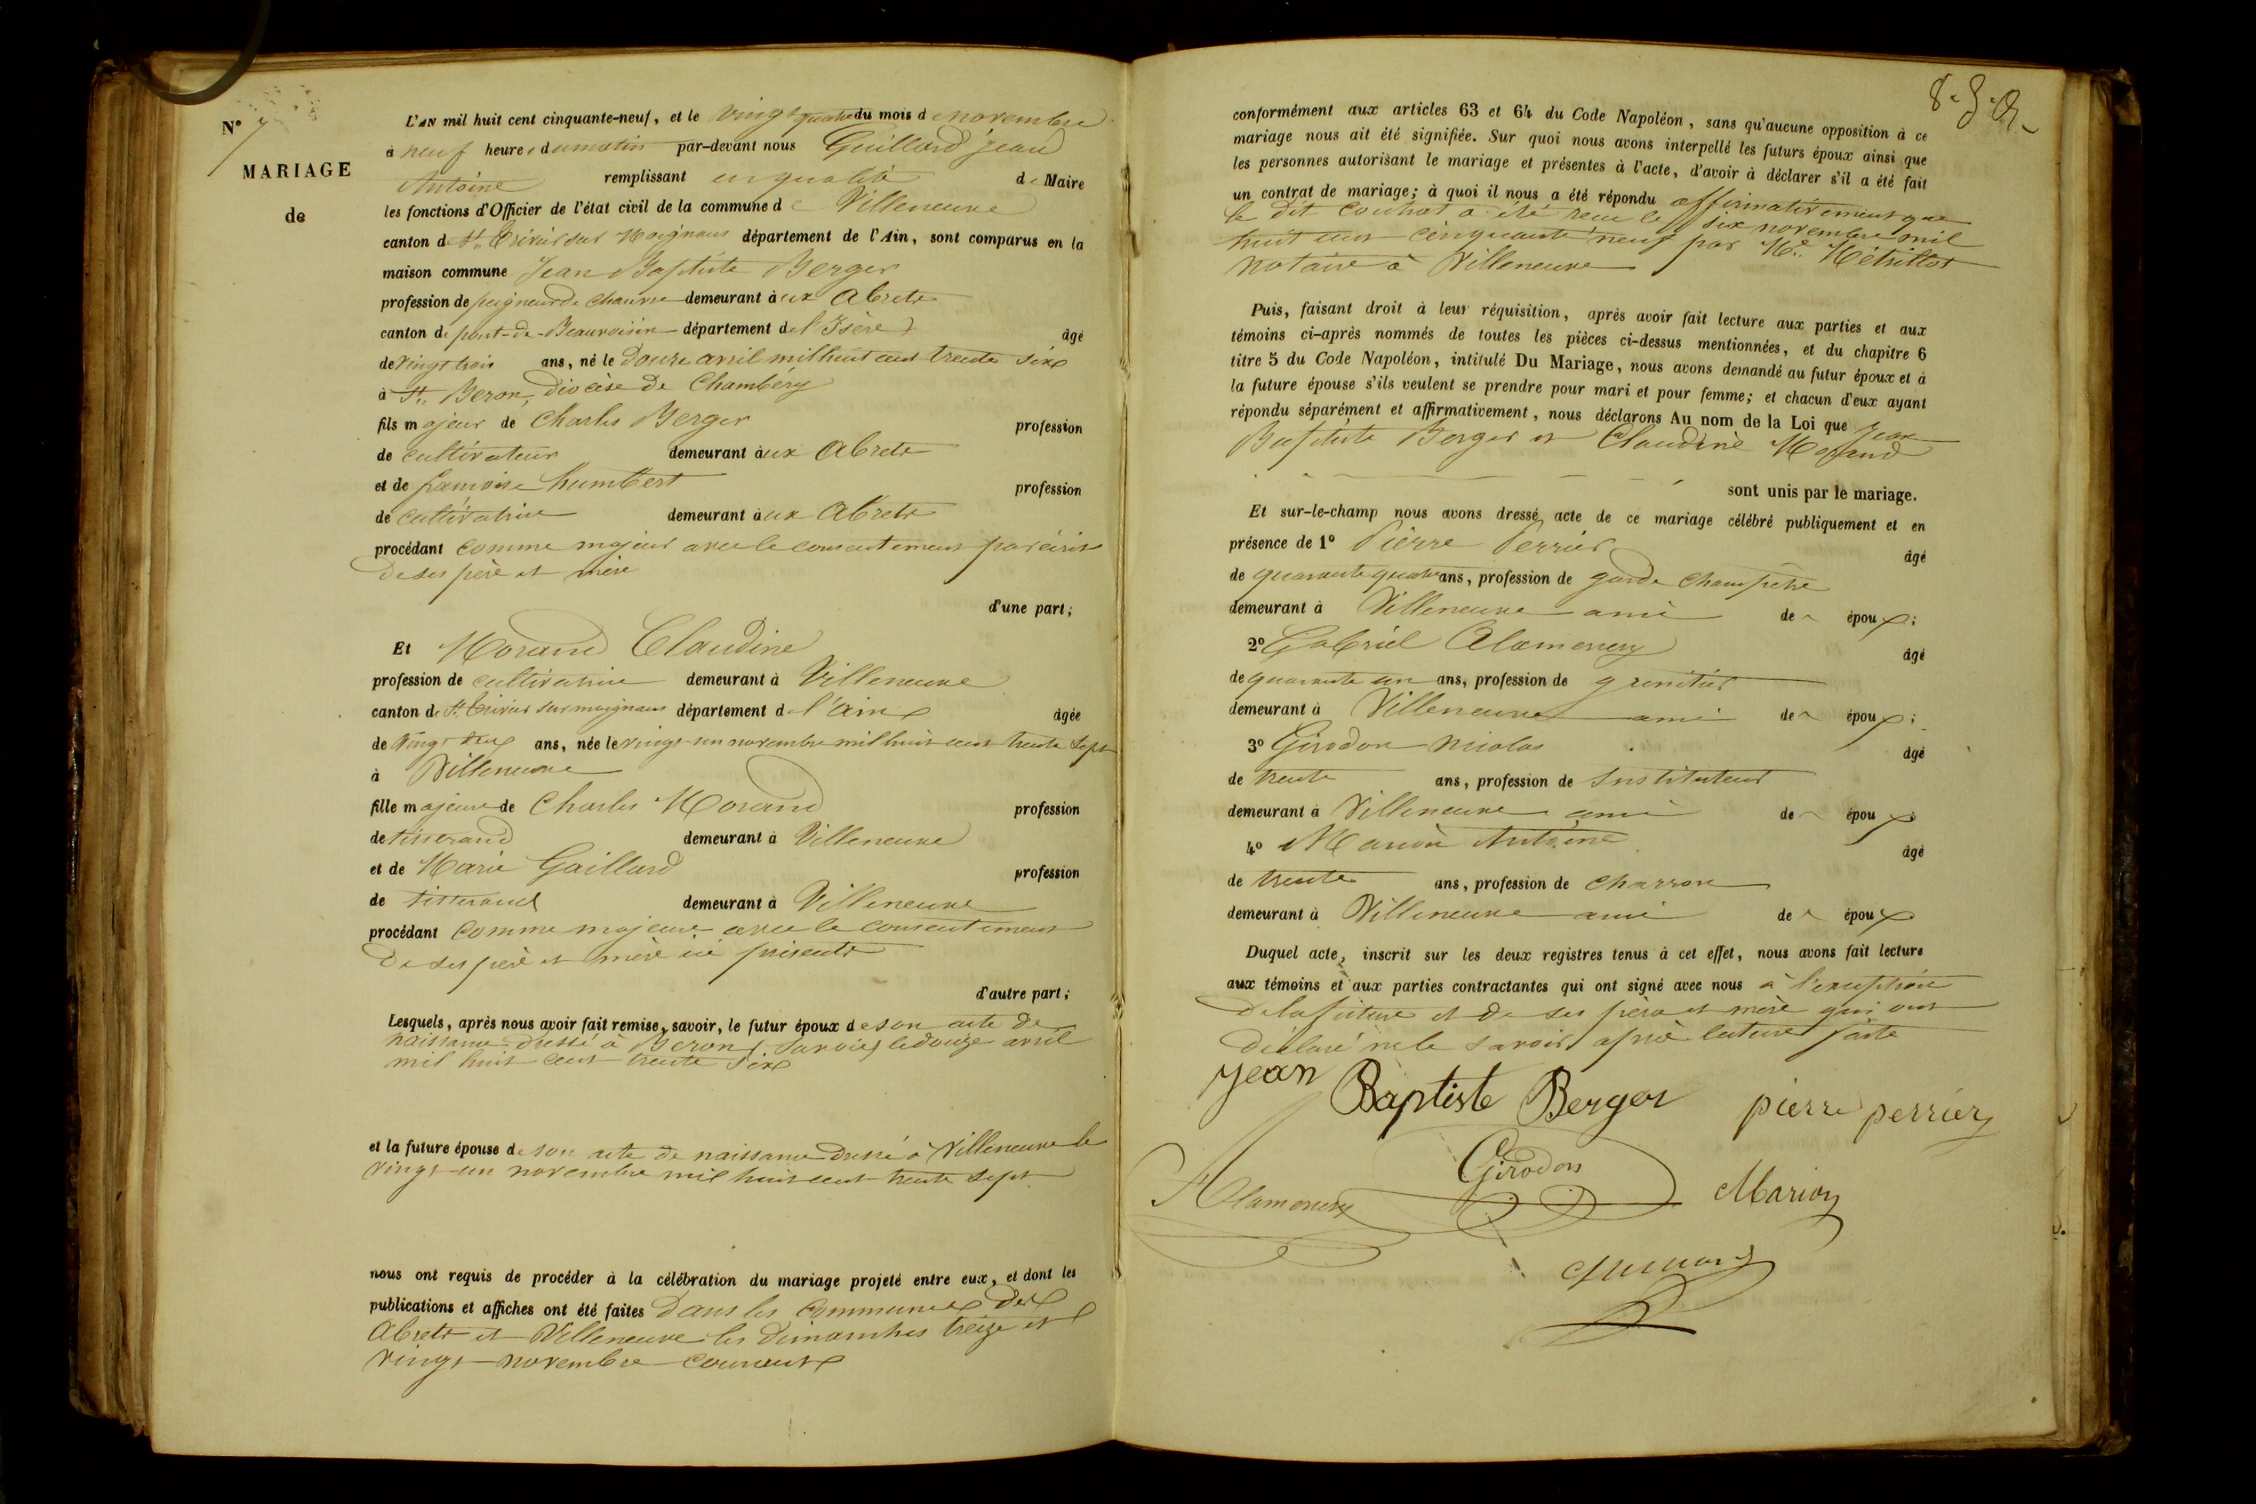 N° 7
MARIAGE
de
L'AN mil huit cent cinquante-neuf, et le vingt quatre du mois de novembre
à neuf heures du matin par-devant nous Guillard Jean
Antoine remplissant en qualité de Maire
les fonctions d'Officier de l'état civil de la commune de Villeneuve
canton de St. Trivier sur Moignans département de l'Ain, sont comparus en la
maison commune Jean Baptiste Berger
profession de peigneur de chanvre demeurant à ux Abrets
canton de pont-de-Beauvoisin département de l'Isère âgé
de vingt trois ans, né le douze avril mil huit cent trente six
à St. Beron, diocèse de Chambéry
fils majeur de Charles Berger profession
de cultivateur demeurant à ux Abrets
et de françoise humbert profession
de cultivatrice demeurant à ux Abrets
procédant comme majeur avec le consentement par écrit
de ses père et mère
d'une part;
Et Morand Claudine
profession de cultivatrice demeurant à Villeneuve
canton de St. Trivier sur moignans département de l'ain âgée
de vingt deux ans, née le vingt-un novembre mil huit cent trente sept
à Villeneuve
fille majeure de Charles Morand profession
de tisserand demeurant à Villeneuve
et de Marie Gaillard profession
de tisserand demeurant à Villeneuve
procédant comme majeure avec le consentement
de ses père et mère ici présents
d'autre part;
Lesquels, après nous avoir fait remise, savoir, le futur époux de son acte de
naissance dressé à Beron (Savoie) le douze avril
mil huit cent trente six
et la future épouse de son acte de naissance dressé à Villeneuve le
vingt-un novembre mil huit cent trente sept
nous ont requis de procéder à la célébration du mariage projeté entre eux, et dont les
publications et affiches ont été faites dans les communes des
Abrets et Villeneuve les dimanches treize et
vingt novembre courant
conformément aux articles 63 et 64 du Code Napoléon, sans qu'aucune opposition à ce
mariage nous ait été signifiée. Sur quoi nous avons interpellé les futurs époux ainsi que
les personnes autorisant le mariage et présentes à l'acte, d'avoir à déclarer s'il a été fait
un contrat de mariage; à quoi il nous a été répondu affirmativement que
le dit contrat a été reçu le six novembre mil
huit cent cinquante neuf par Me. Métrillot
notaire à Villeneuve
Puis, faisant droit à leur réquisition, après avoir fait lecture aux parties et aux
témoins ci-après nommés de toutes les pièces ci-dessus mentionnées, et du chapitre 6
titre 5 du Code Napoléon, intitulé Du Mariage, nous avons demandé au futur époux et à
la future épouse s'ils veulent se prendre pour mari et pour femme; et chacun d'eux ayant
répondu séparément et affirmativement, nous déclarons Au nom de la Loi que Jean
Baptiste Berger et Claudine Morand
sont unis par le mariage.
Et sur-le-champ nous avons dressé acte de ce mariage célébré publiquement et en
présence de 1° Pierre Perrier âgé
de quarante quatre ans, profession de garde champêtre
demeurant à Villeneuve ami de époux;
2° Gabriel Alamercery âgé
de quarante un ans, profession de grenetier
demeurant à Villeneuve ami de époux;
3° Girodon Nicolas âgé
de trente ans, profession de Instituteur
demeurant à Villeneuve ami de époux
4° Marion Antoine âgé
de trente ans, profession de charron
demeurant à Villeneuve ami de époux
Duquel acte, inscrit sur les deux registres tenus à cet effet, nous avons fait lecture
aux témoins et aux parties contractantes qui ont signé avec nous à l'exception
de la future et de ses père et mère qui ont
déclaré ne le savoir après lecture faite
Jean Baptiste Berger pierre perrier
Girodon
Alamercery Marion